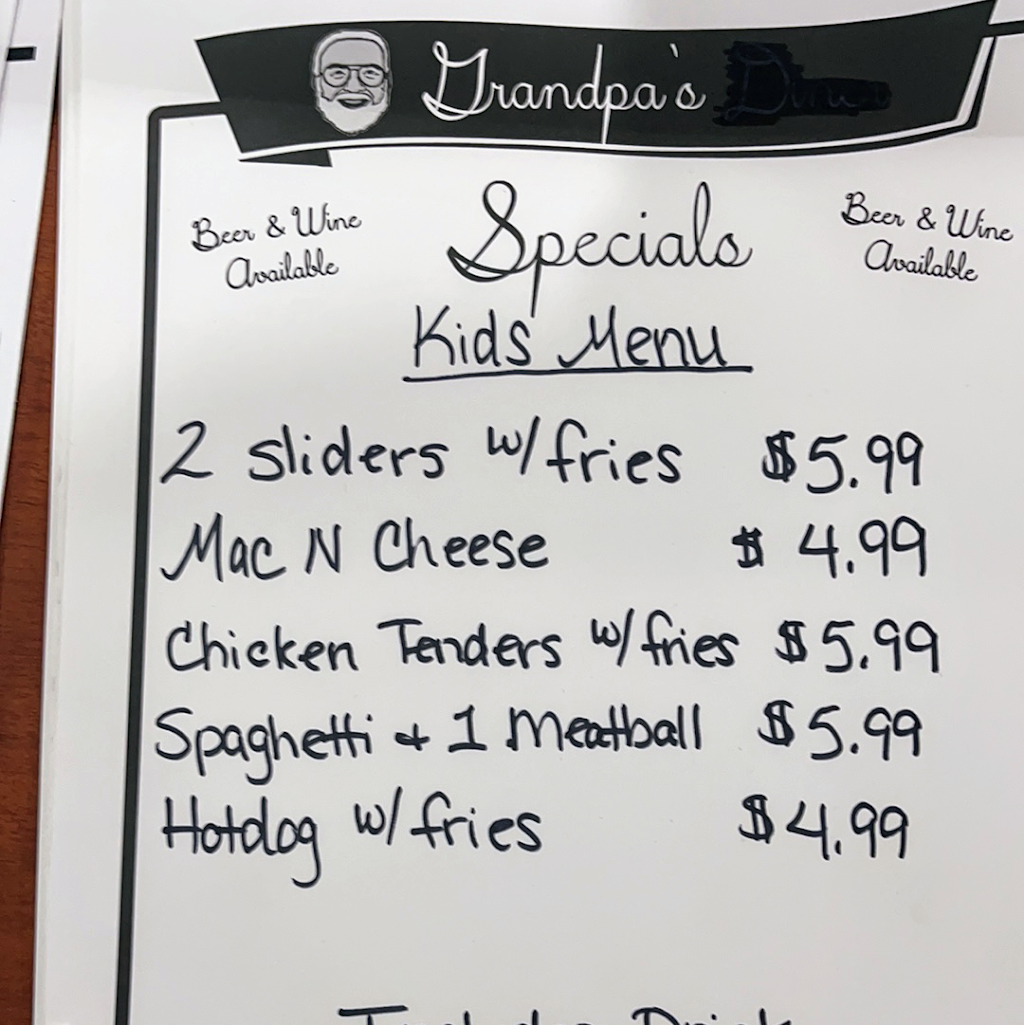 Grandpa's Diner
Beer & Wine
Available
Specials
Beer & Wine
Available
Kids Menu
2 sliders w/ fries $5.99
Mac N Cheese $4.99
Chicken Tenders w/ fries $5.99
Spaghetti & 1 Meatball $5.99
Hotdog w/ fries $4.99
Includes Drink